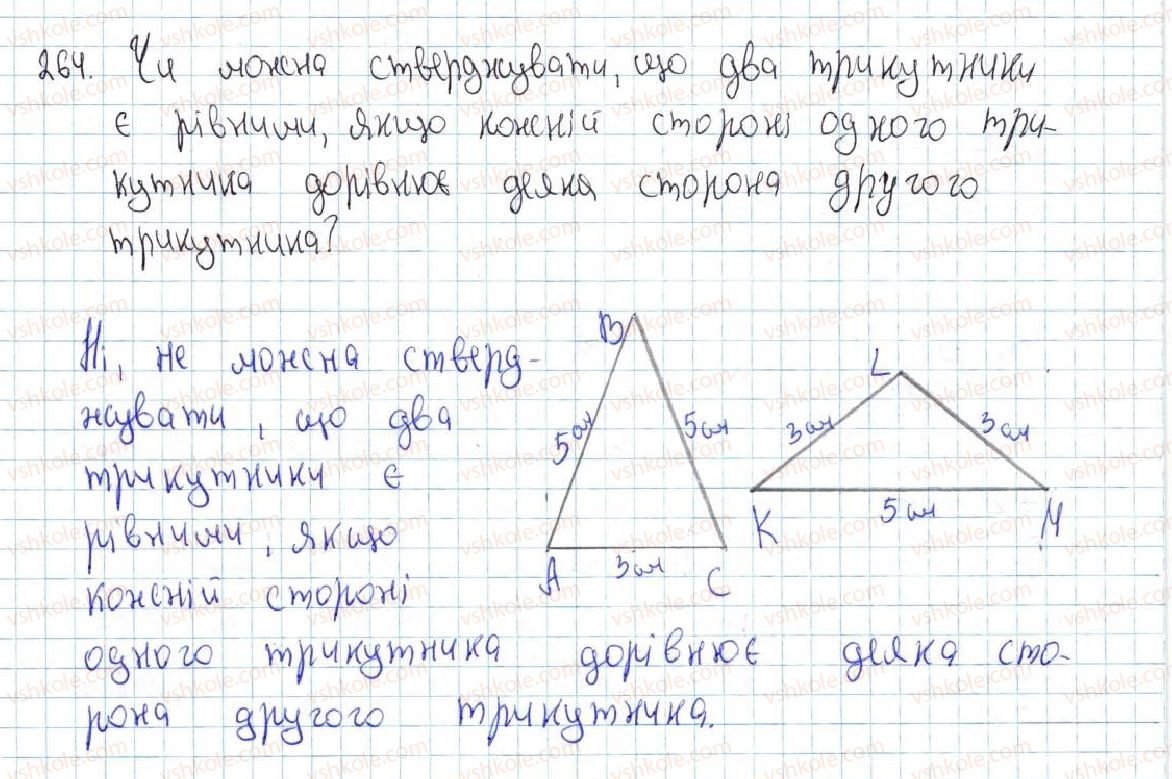 264. Чи можна стверджувати, що два трикутники
є рівними, якщо кожній стороні одного три-
кутника дорівнює деяка сторона другого
трикутника?
Ні, не можна стверд-
жувати, що два
трикутники є
рівними, якщо
кожній стороні
одного трикутника дорівнює деяка сто-
рона другого трикутника.
B
5 см
5 см
A
3 см
C
L
3 см
3 см
K
5 см
M
vshkole.com